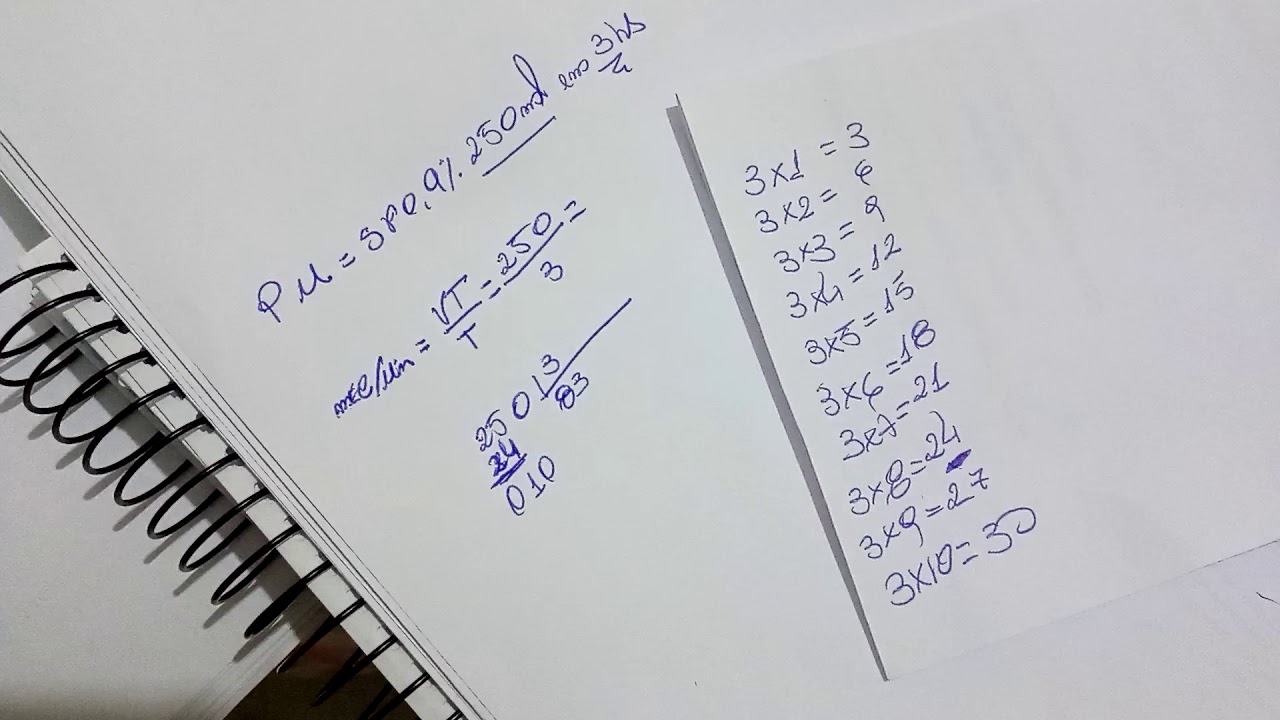 PM = SF 0,9% 250ml em 3hs
mcg/Min = VT = 250 =
T 3
250 3
24 83
010
3x1 = 3
3x2 = 6
3x3 = 9
3x4 = 12
3x5 = 15
3x6 = 18
3x7 = 21
3x8 = 24
3x9 = 27
3x10 = 30